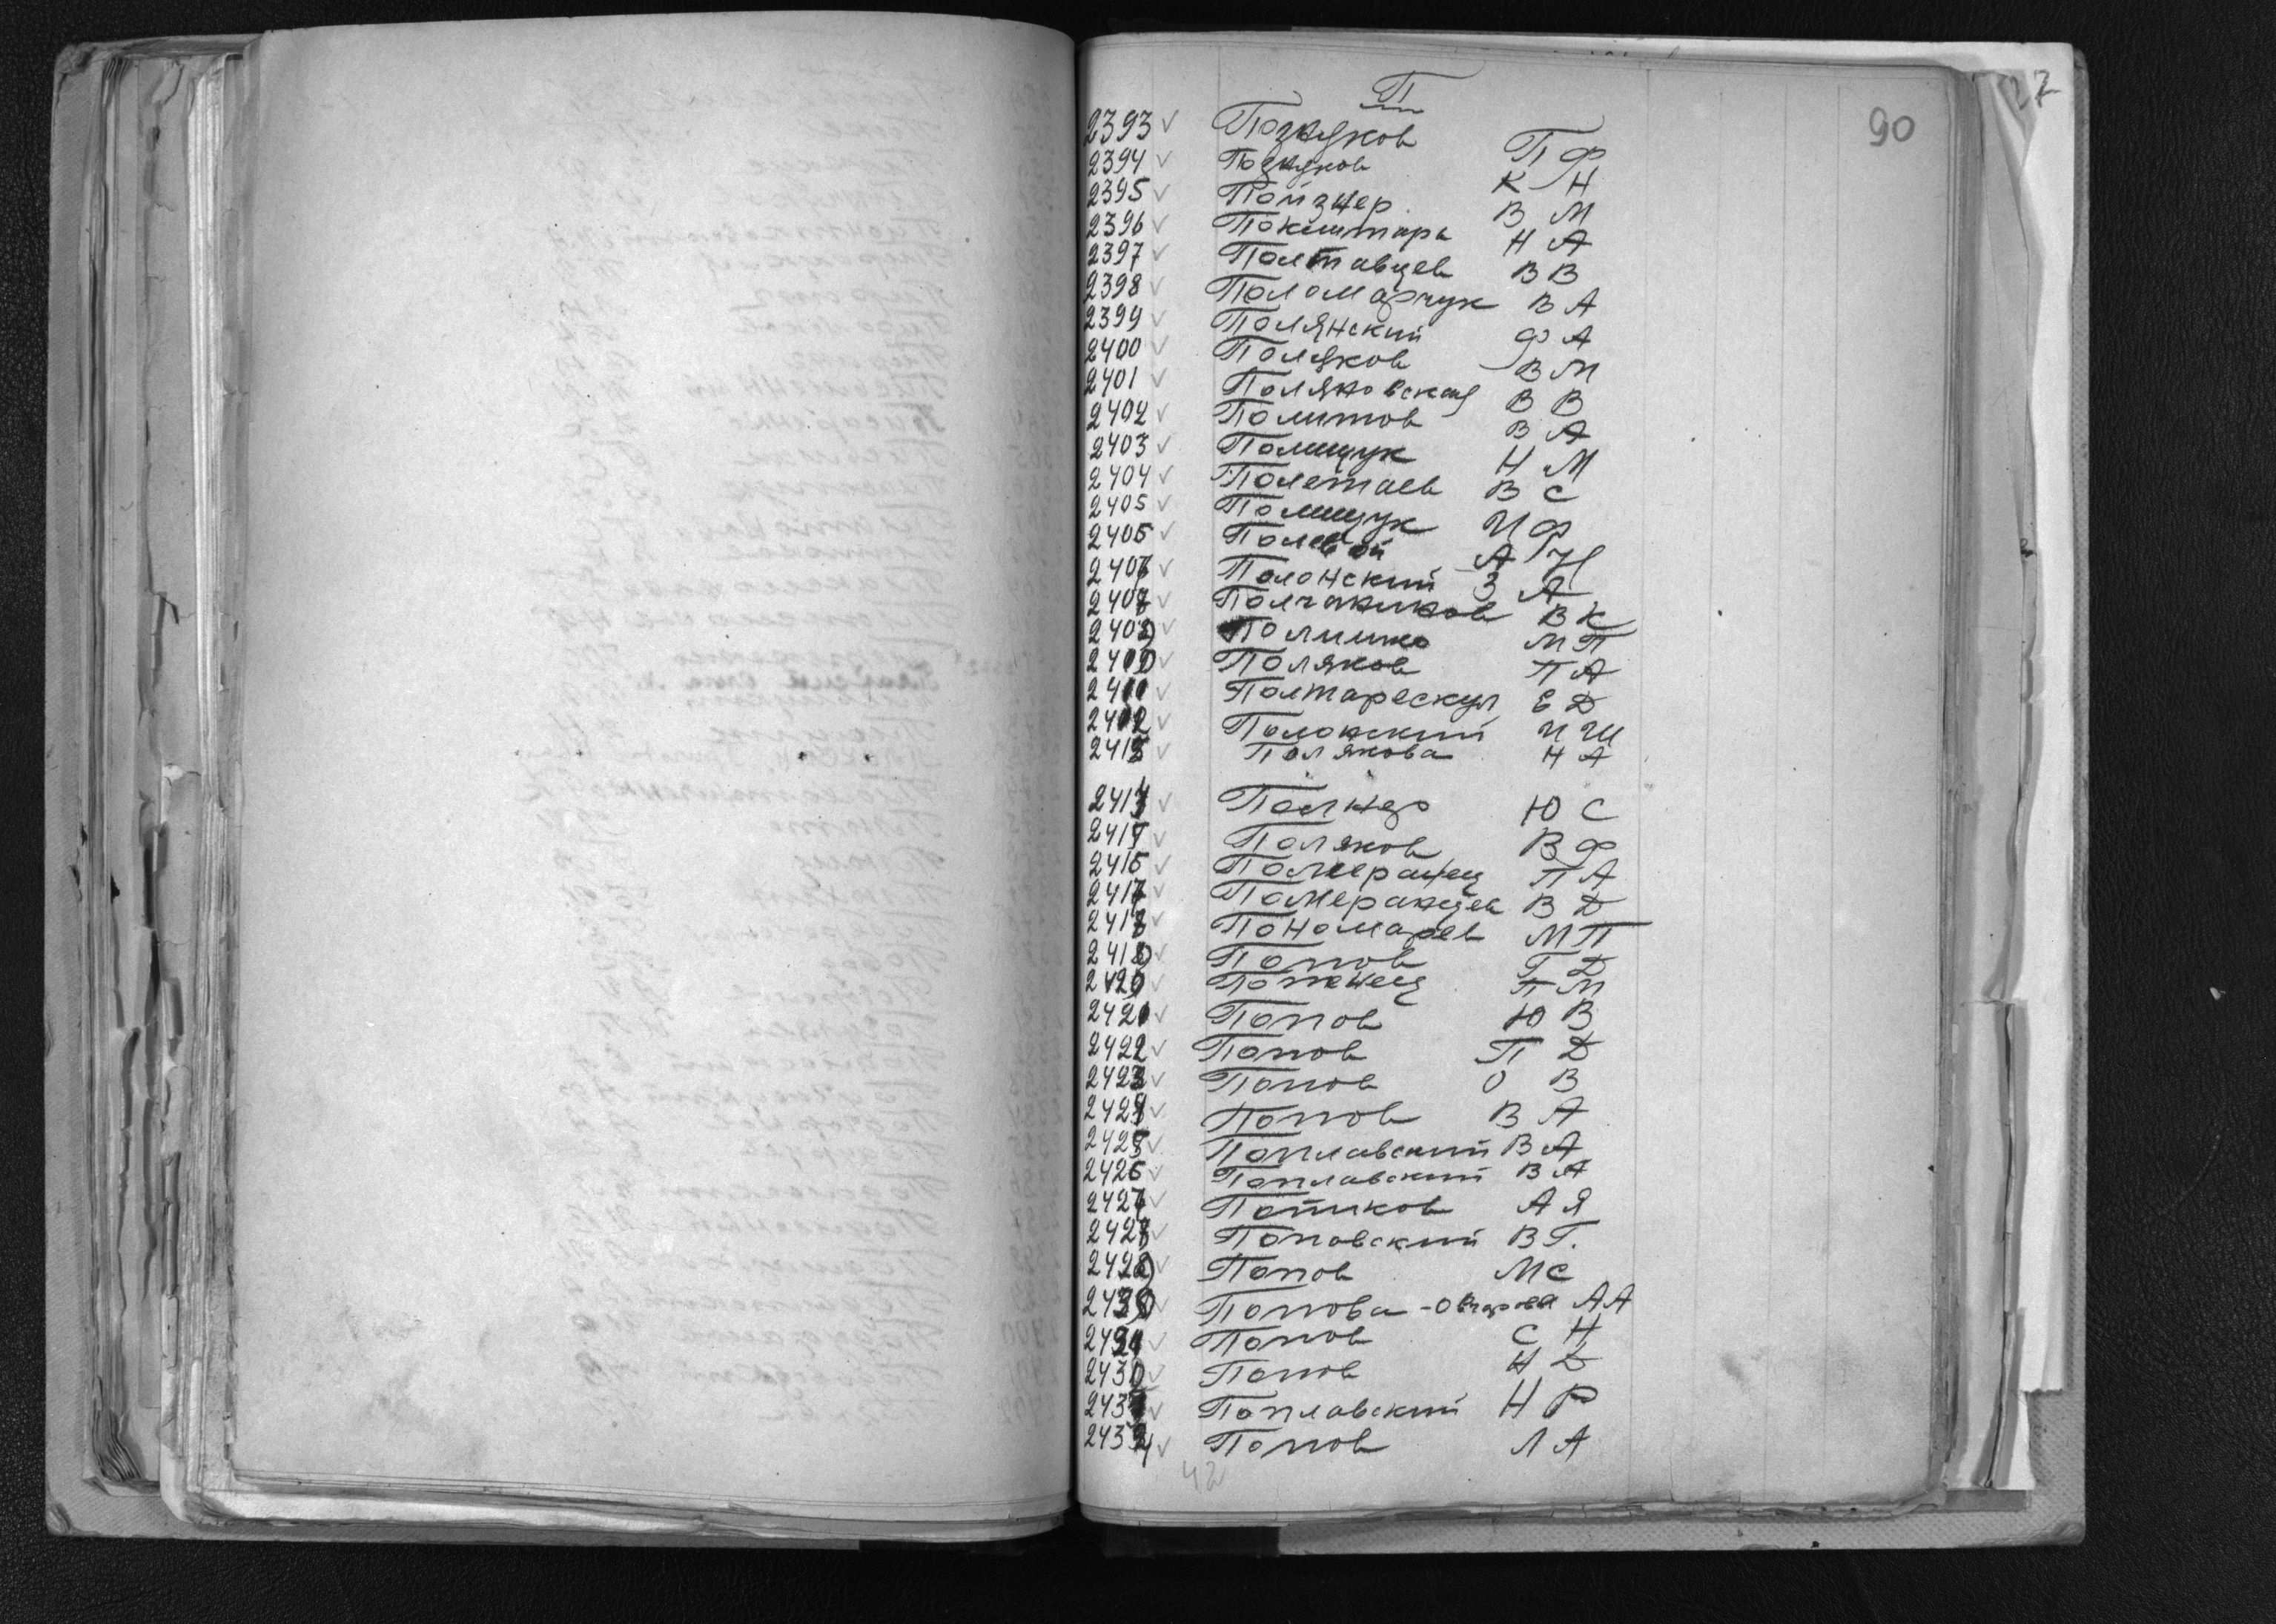 27
90
П
2393 Позняков П Ф
2394 Поздняков К Н
2395 Пойзнер В М
2396 Покиштарь Н А
2397 Полтавцев В В
2398 Поломарчук В А
2399 Полянский Ф А
2400 Поляков В М
2401 Поляновская В В
2402 Политов В А
2403 Полищук Н М
2404 Полетаев В С
2405 Полищук И Ф
2406 Полевой А Н
2407 Полонский З А
2408 Полчанинов В К
2409 М П
2410 Поляков П А
2411 Полтарескул Е Д
2412 Полонский И Ш
2413 Полякова Н А
2414 Полнер Ю С
2415 Поляков В Ф
2416 Померанец П А
2417 Померанцев В Д
2418 Пономарев М П
2419 Попов Г Д
2420 П М
2421 Попов Ю В
2422 Попов П Д
2423 Попов О В
2424 Попов В А
2425 Поплавский В А
2426 Поплавский В А
2427 Потиков А Я
2428 Поповский В Г.
2429 Попов М С
2430 Попова-Овчарова А А
2431 Попов С Н
2432 Попов Н Д
2433 Поплавский Н Р
2434 Попов Л А
42